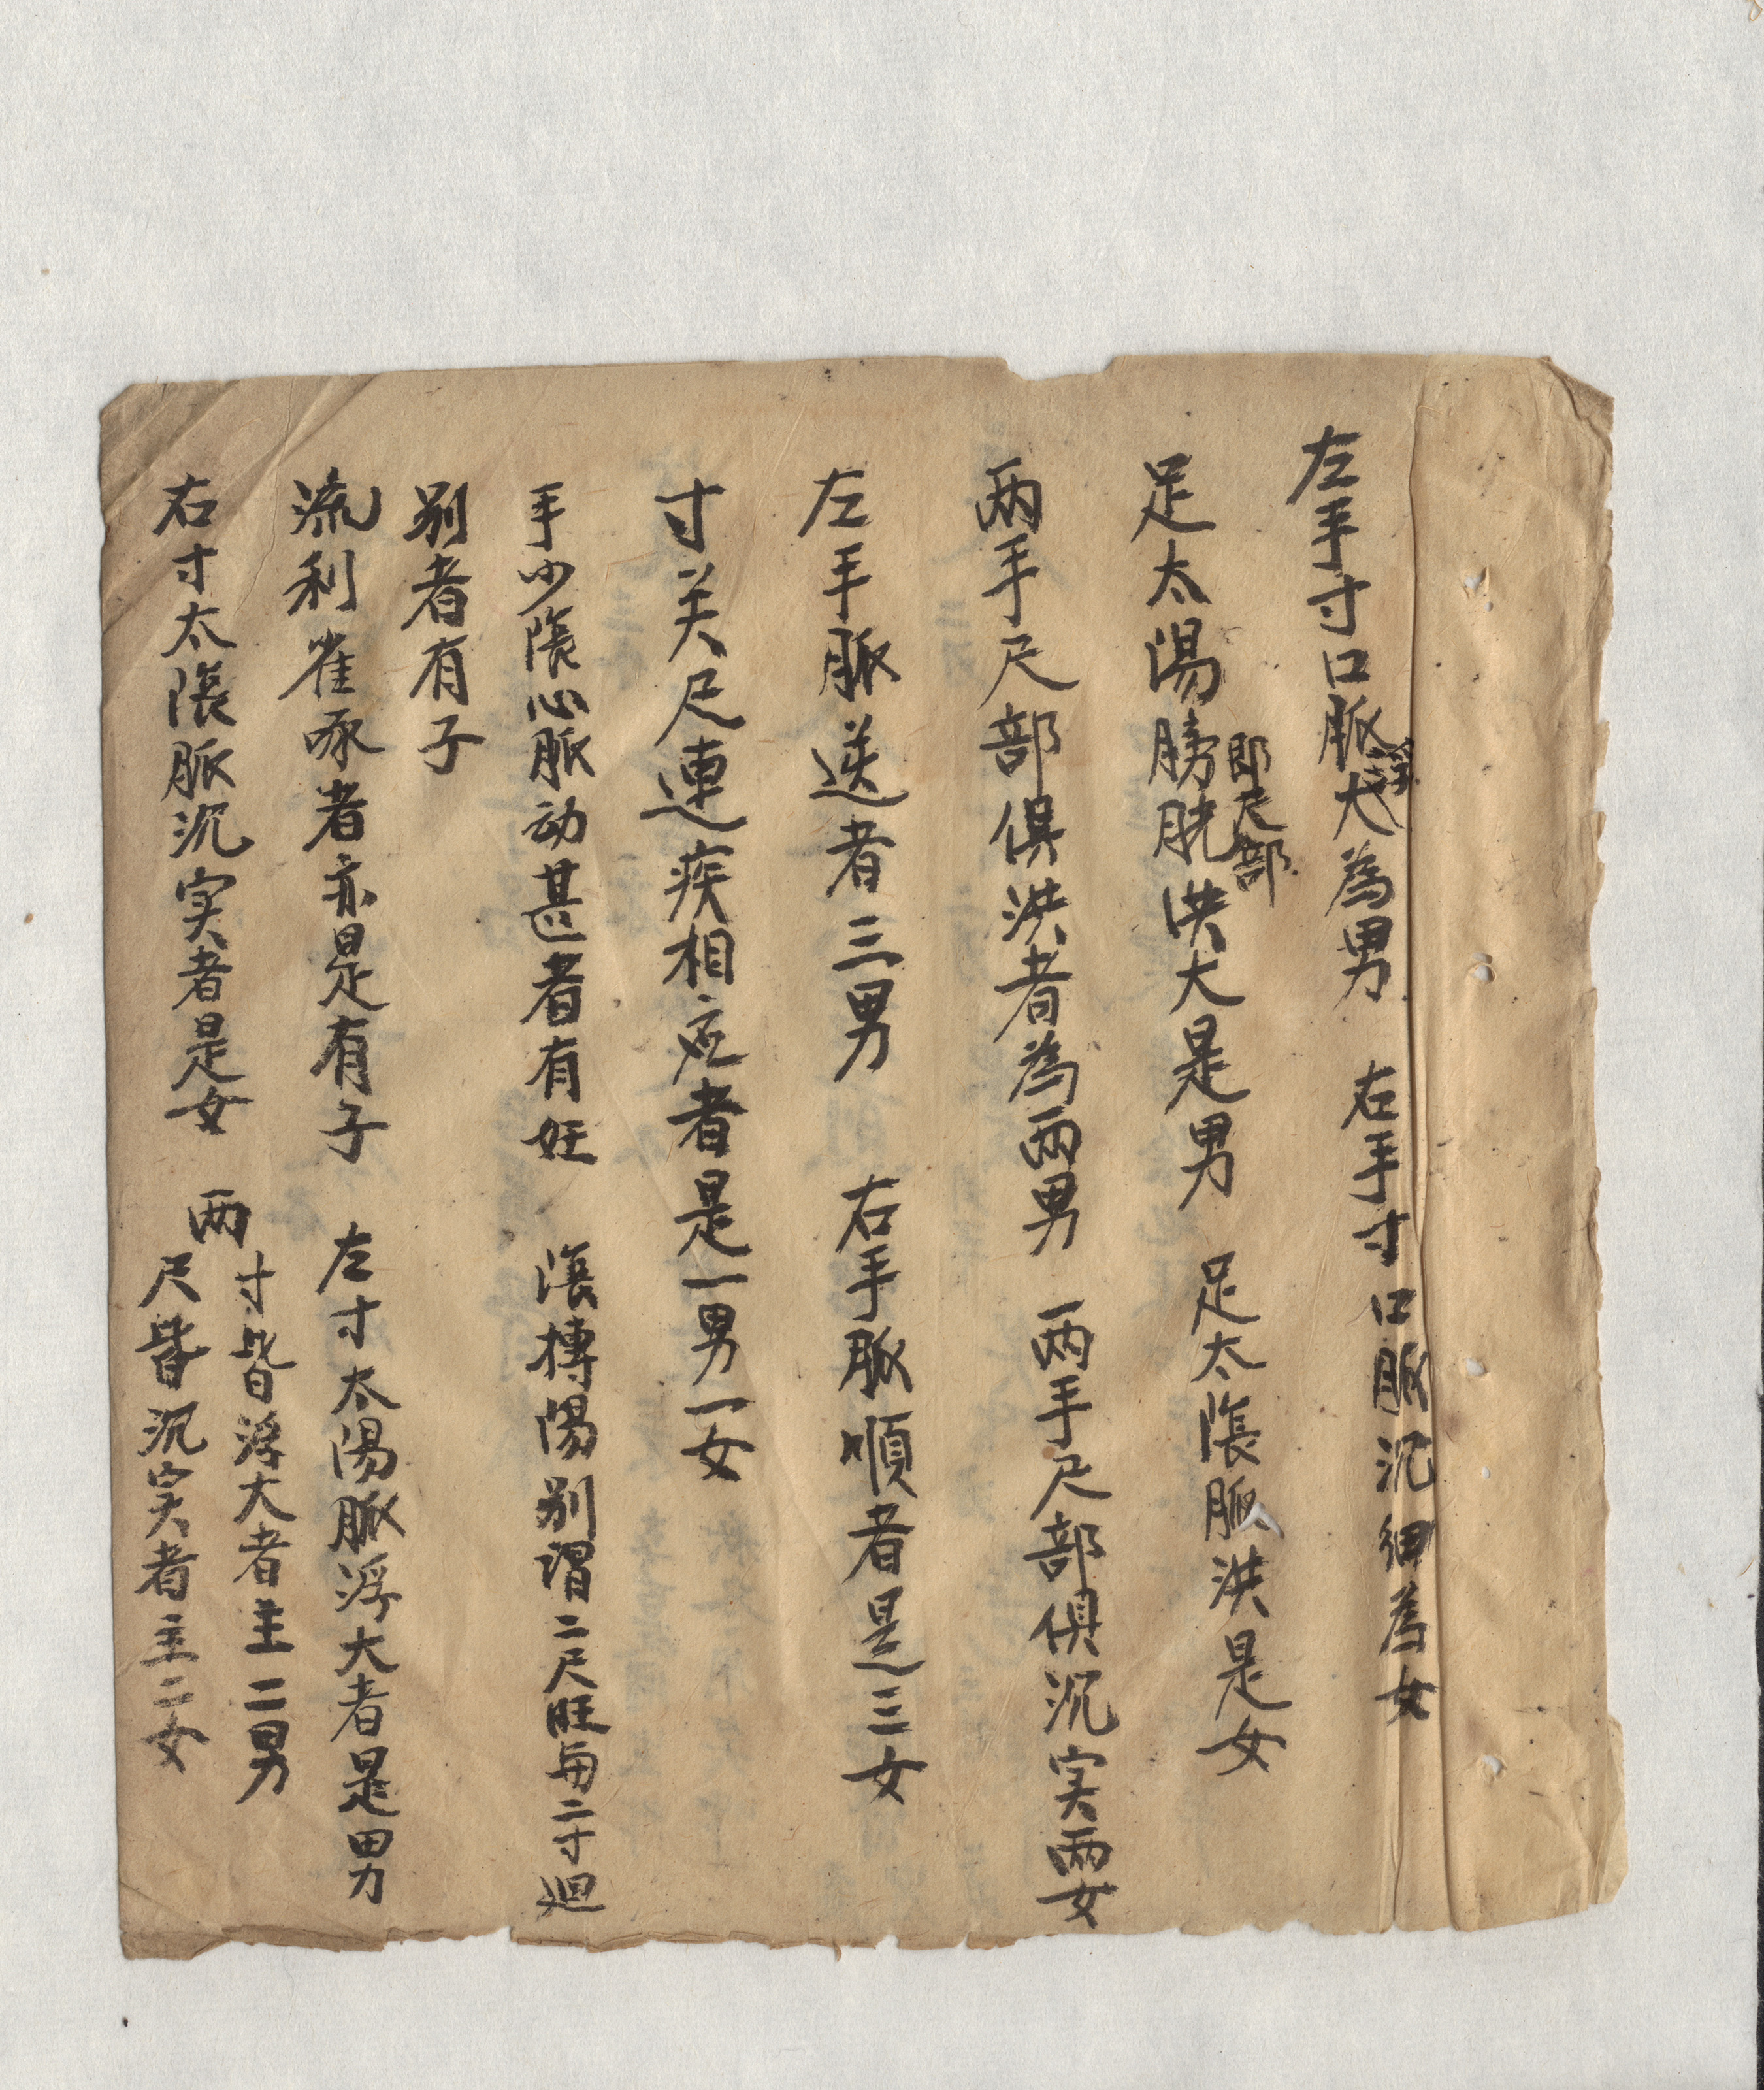 左手寸口脈浮大為男　右手寸口脈沉細為女
足太陽膀胱即尺部洪大是男　足太陰脈洪是女
两手尺部俱洪者為两男　两手尺部俱沉实两女
左手脈逆者三男　右手脈順者是三女
寸关尺連疾相应者是一男一女
手少陰心脈动甚者有妊　陰搏陽别謂二尺旺與二寸迥
别者有子
流利雀啄者亦是有子　左寸太陽脈浮大者是男
右寸太陰脈沉实者是女　两寸皆浮大者主二男
尺皆沉实者主二女